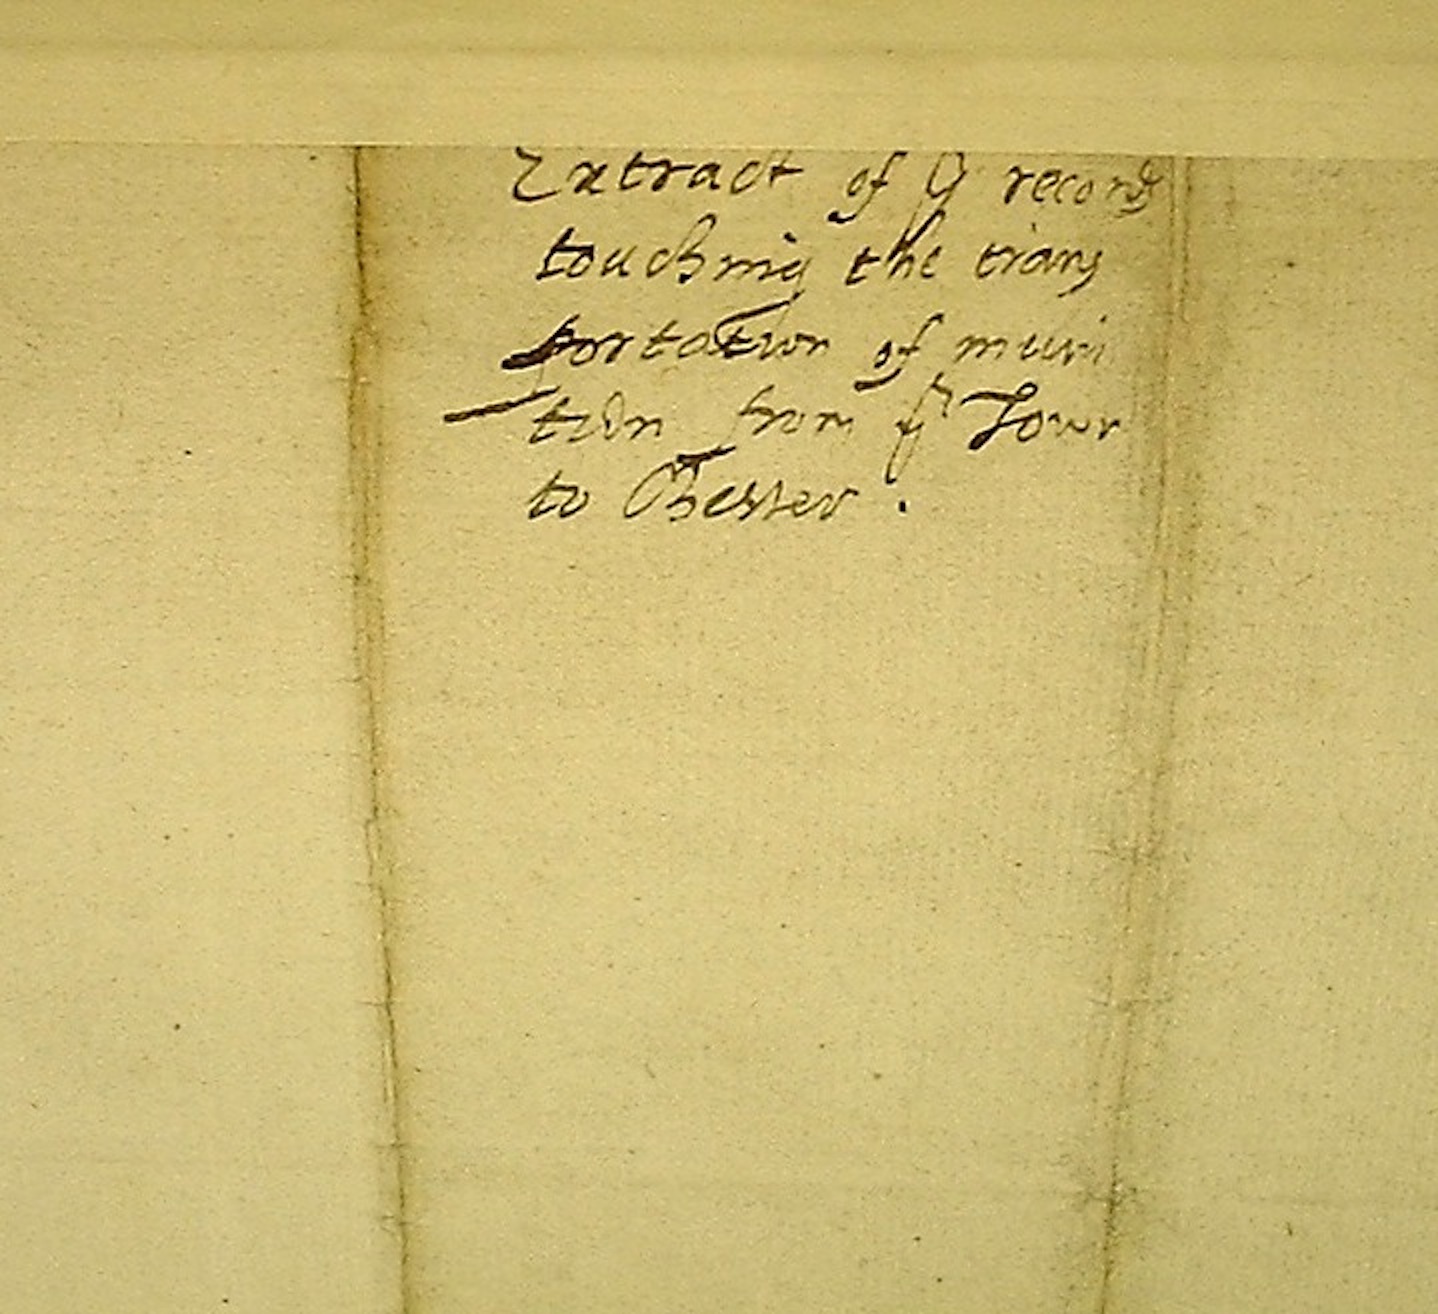 Extract of yͤ records
touching the trans
portation of muni
tion from yͤ Towr
to Chester .